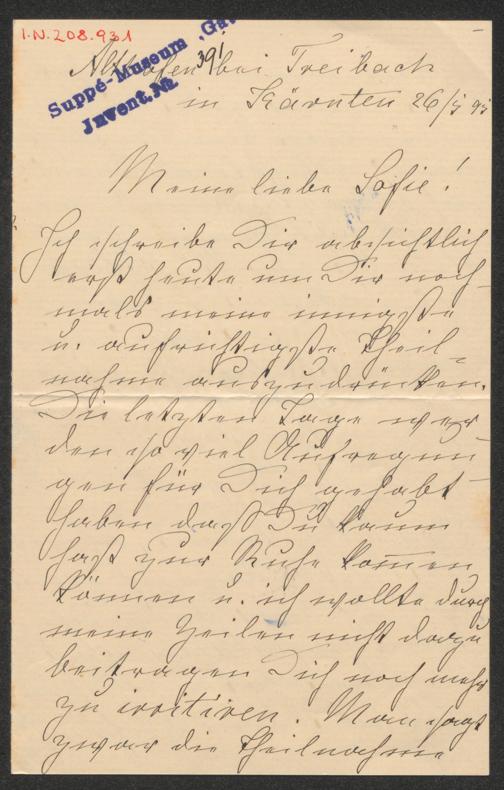 I.N. 208.931
Suppé-Museum
Invent. Nr.
391
Althofen bei Treibach
in Kärnten 26/5 95
Meine liebe Sofie!
Ich schreibe Dir absichtlich
erst heute um Dir noch-
mals meine innigste
u. aufrichtigste Theil-
nahme auszudrücken.
Die letzten Tage wer-
den so viel Aufregun-
gen für Dich gehabt
haben daß Du kaum
hast zur Ruhe kommen
können u. ich wollte durch
meine Zeilen nicht dazu
beitragen Dich noch mehr
zu irritiren. Man sagt
zwar die Theilnahme